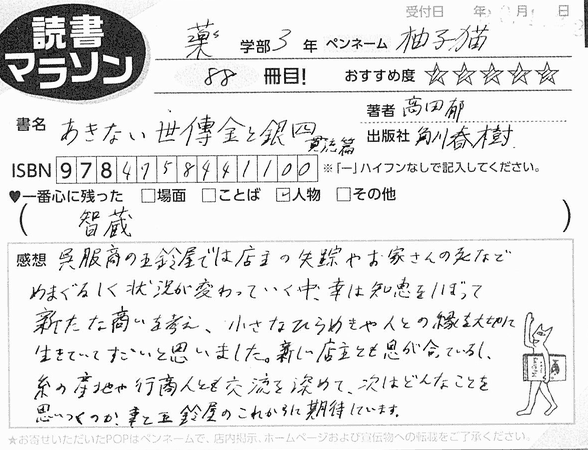 受付日 年 月 日
読書
マラソン
薬 学部 3 年 ペンネーム 柚子猫
88 冊目! おすすめ度 ☆☆☆☆☆
著者 髙田郁
書名 あきない世傳金と銀四 貫流篇
出版社 角川春樹
ISBN 978 4758441100 ※「ー」ハイフンなしで記入してください。
♥一番心に残った □場面 □ことば ☑人物 □その他
( 智蔵 )
感想 呉服商の五鈴屋では店主の失踪やお家さんの死など
めまぐるしく状況が変わっていく中、幸は知恵をしぼって
新たな商いを考え、小さなひらめきや人との縁を大切に
生きていてすごいと思いました。新しい店主とも息が合っているし、
糸の産地や行商人とも交流を深めて、次はどんなことを
思いつくのか、幸と五鈴屋のこれからに期待しています。
★お寄せいただいたPOPはペンネームで、店内掲示、ホームページおよび宣伝物への転載をご了承ください。